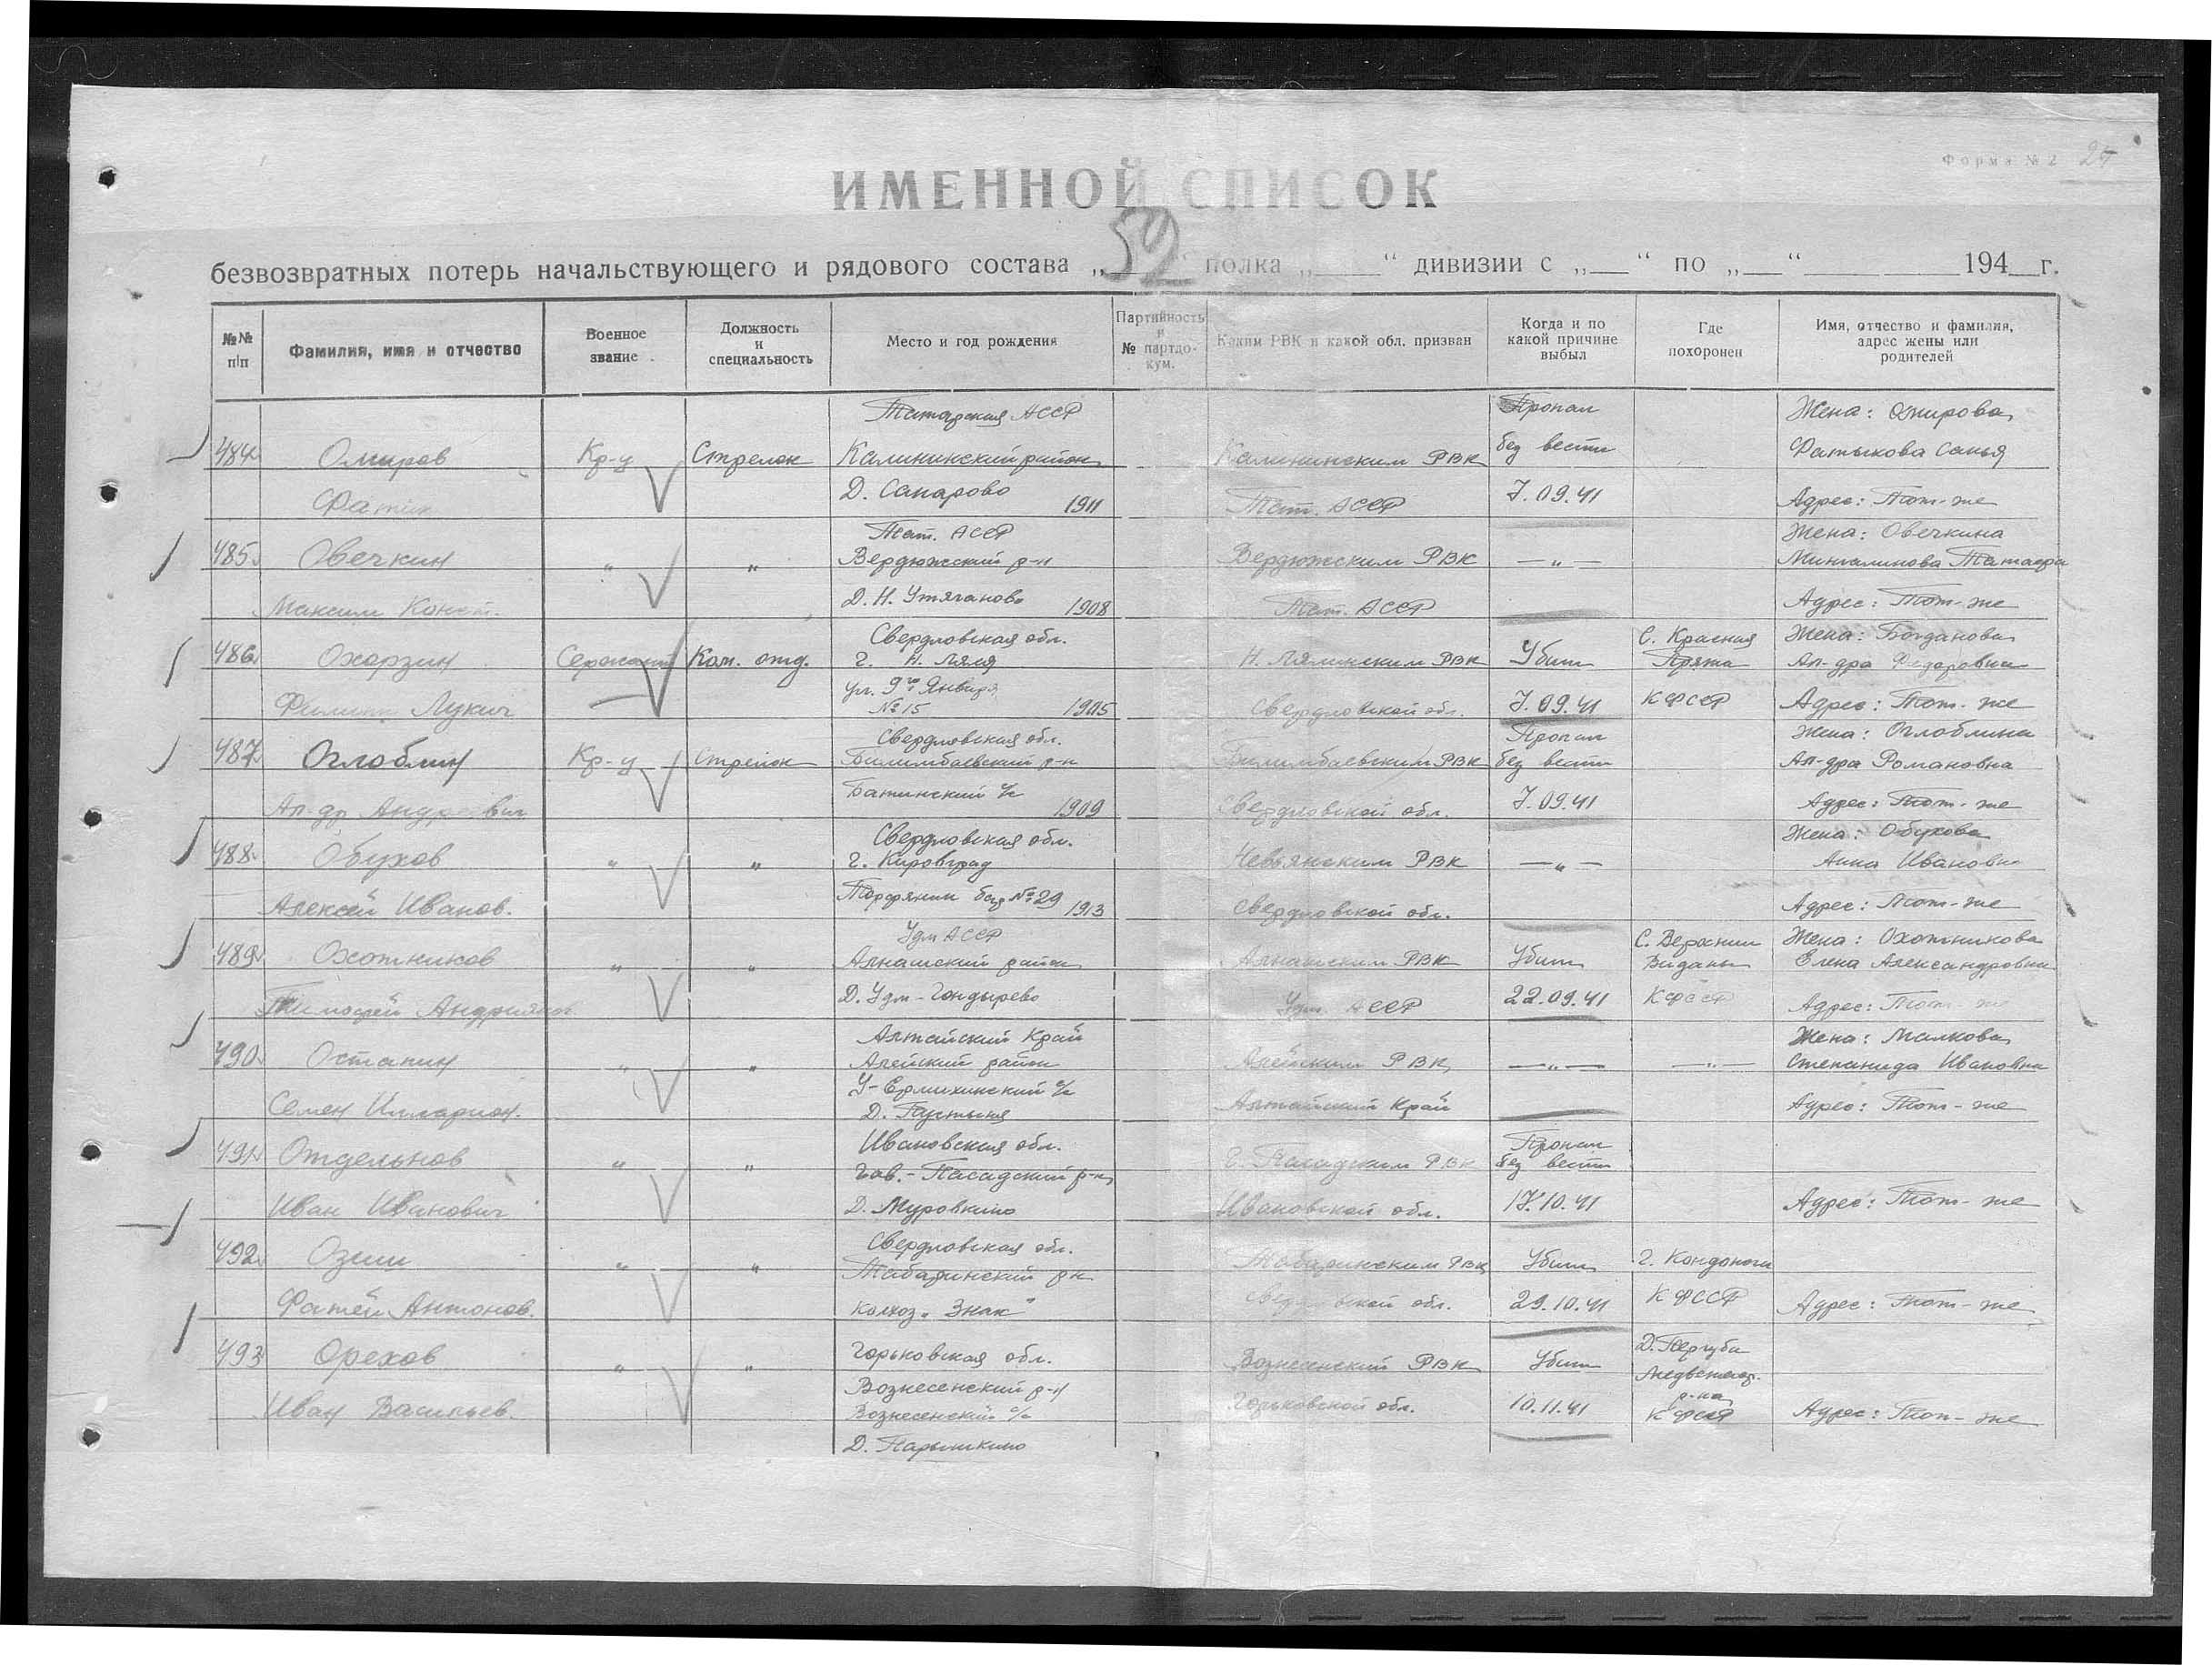 Форма № 2 25
ИМЕННОЙ СПИСОК
59
безвозвратных потерь начальствующего и рядового состава „ полка „ “ дивизии с „ “ по „ “ 194 г.
№№ п/п
Фамилия, имя и отчество
Военное звание
Должность и специальность
Место и год рождения
Партийность и № партдокум.
Каким РВК и какой обл. призван
Когда и по какой причине выбыл
Где похоронен
Имя, отчество и фамилия, адрес жены или родителей
Татарская АССР Пропал Жена: Омирова
484 Омиров Кр-ц Стрелок Калининский район Калининским РВК без вести Фатыкова Санья
Фатик Д. Сапарово 1911 Тат. АССР 7.09.41 Адрес: Тот-же
Тат. АССР Жена: Овечкина
485 Овечкин " " Вердюжский р-н Вердюжским РВК —"—
Максим Конст. Д. Н. Утяганово 1908 Тат. АССР Адрес: Тот-же
Свердловская обл. С. Красная Жена: Богданова
486 Охорзин Сержант Ком. отд. г. Н. Ляля Н. Лялинским РВК Убит Пряжа Ал-дра Федоровна
Филипп Лукич ул. 9го Января № 15 1905 Свердловской обл. 7.09.41 КФССР Адрес: Тот-же
Свердловская обл. Пропал Жена: Оглоблина
487 Оглоблин Кр-ц Стрелок Билимбаевский р-н Билимбаевским РВК без вести Ал-дра Романовна
Ал-др Андреевич Битинский с/с 1909 Свердловской обл. 7.09.41 Адрес: Тот-же
Свердловская обл. Жена: Обухова
488 Обухов " " г. Кировград Невьянским РВК —"— Анна Ивановн
Алексей Иванов. Торфяник бар № 29 1913 Свердловской обл. Адрес: Тот-же
Удм АССР С. Верхние Жена: Охотникова
489 Охотников " " Алнашский район Алнашским РВК Убит Виданы Елена Александровна
Тимофей Андриянов Д. Удм-Гондырево Удм. АССР 22.09.41 КФССР Адрес: Тот-же
Алтайский Край Жена: Малкова
490 Остапин " " Алейский район Алейским РВК —"— —"— Степанида Ивановна
Семен Илларион. У-Ермихинский с/с Алтайский Край Адрес: Тот-же
Д. Пустынь
Ивановская обл. Пропал
491 Отдельнов " " Гав.-Посадский р-н Г. Посадским РВК без вести
Иван Иванович Д. Муровкино Ивановской обл. 17.10.41 Адрес: Тот-же
Свердловская обл.
492 Озин " " Табаринский р-н Табаринским РВК Убит г. Кондопоги
Фатей Антонов. колхоз „Знак" Свердловской обл. 29.10.41 КФССР Адрес: Тот-же
Д. Пергуба
493 Орехов " " Горьковская обл. Вознесенский РВК Убит Медвежьег.
Вознесенский р-н р-на
Иван Васильев. Вознесенский с/с Горьковской обл. 10.11.41 КФССР Адрес: Тот-же
Д. Нарышкино